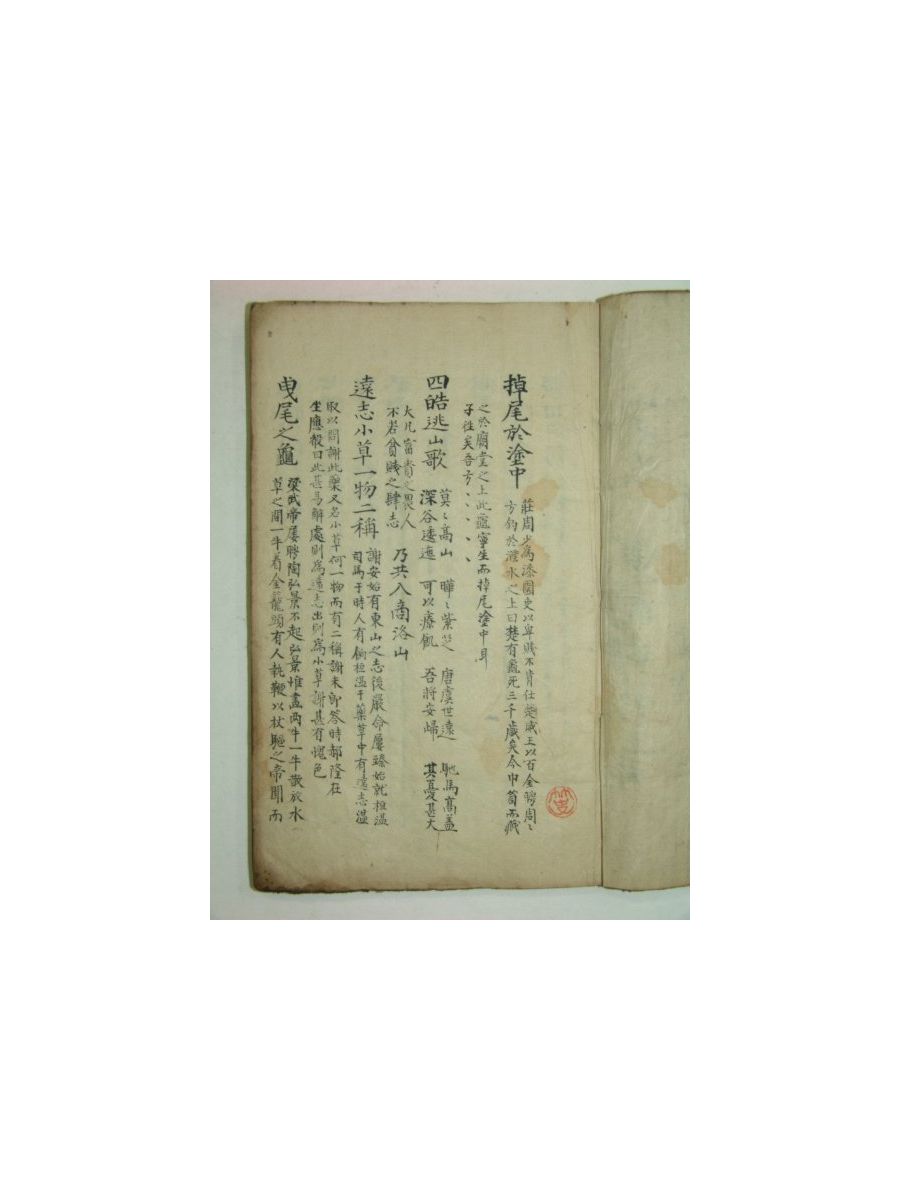 掉尾於塗中
莊周少為漆園吏以卑賤不肯仕楚威王以百金聘周〻
方釣於濮水之上曰楚有龜死三千歲矣今巾笥而藏
之於廟堂之上此龜寧生而掉尾塗中耳
子往矣吾方、、、、
四皓逃山歌
莫〻高山 曄〻紫芝 唐虞世遠 馳馬高盖
深谷逶迤 可以療飢 吾將安歸 其憂甚大
大凡富貴之畏人
不若貧賤之肆志
乃共入商洛山
遠志小草一物二稱
謝安始有東山之志後嚴命屢臻始就桓溫
司馬于時人有餉桓溫于藥草中有遠志溫
取以問謝此藥又名小草何一物而有二稱謝未即答時郝隆在
坐應聲曰此甚易解處則為遠志出則為小草謝甚有愧色
曳尾之龜
梁武帝屢聘陶弘景不起弘景惟畫兩牛一牛散放水
草之間一牛着金籠頭有人執鞭以杖驅之帝聞而